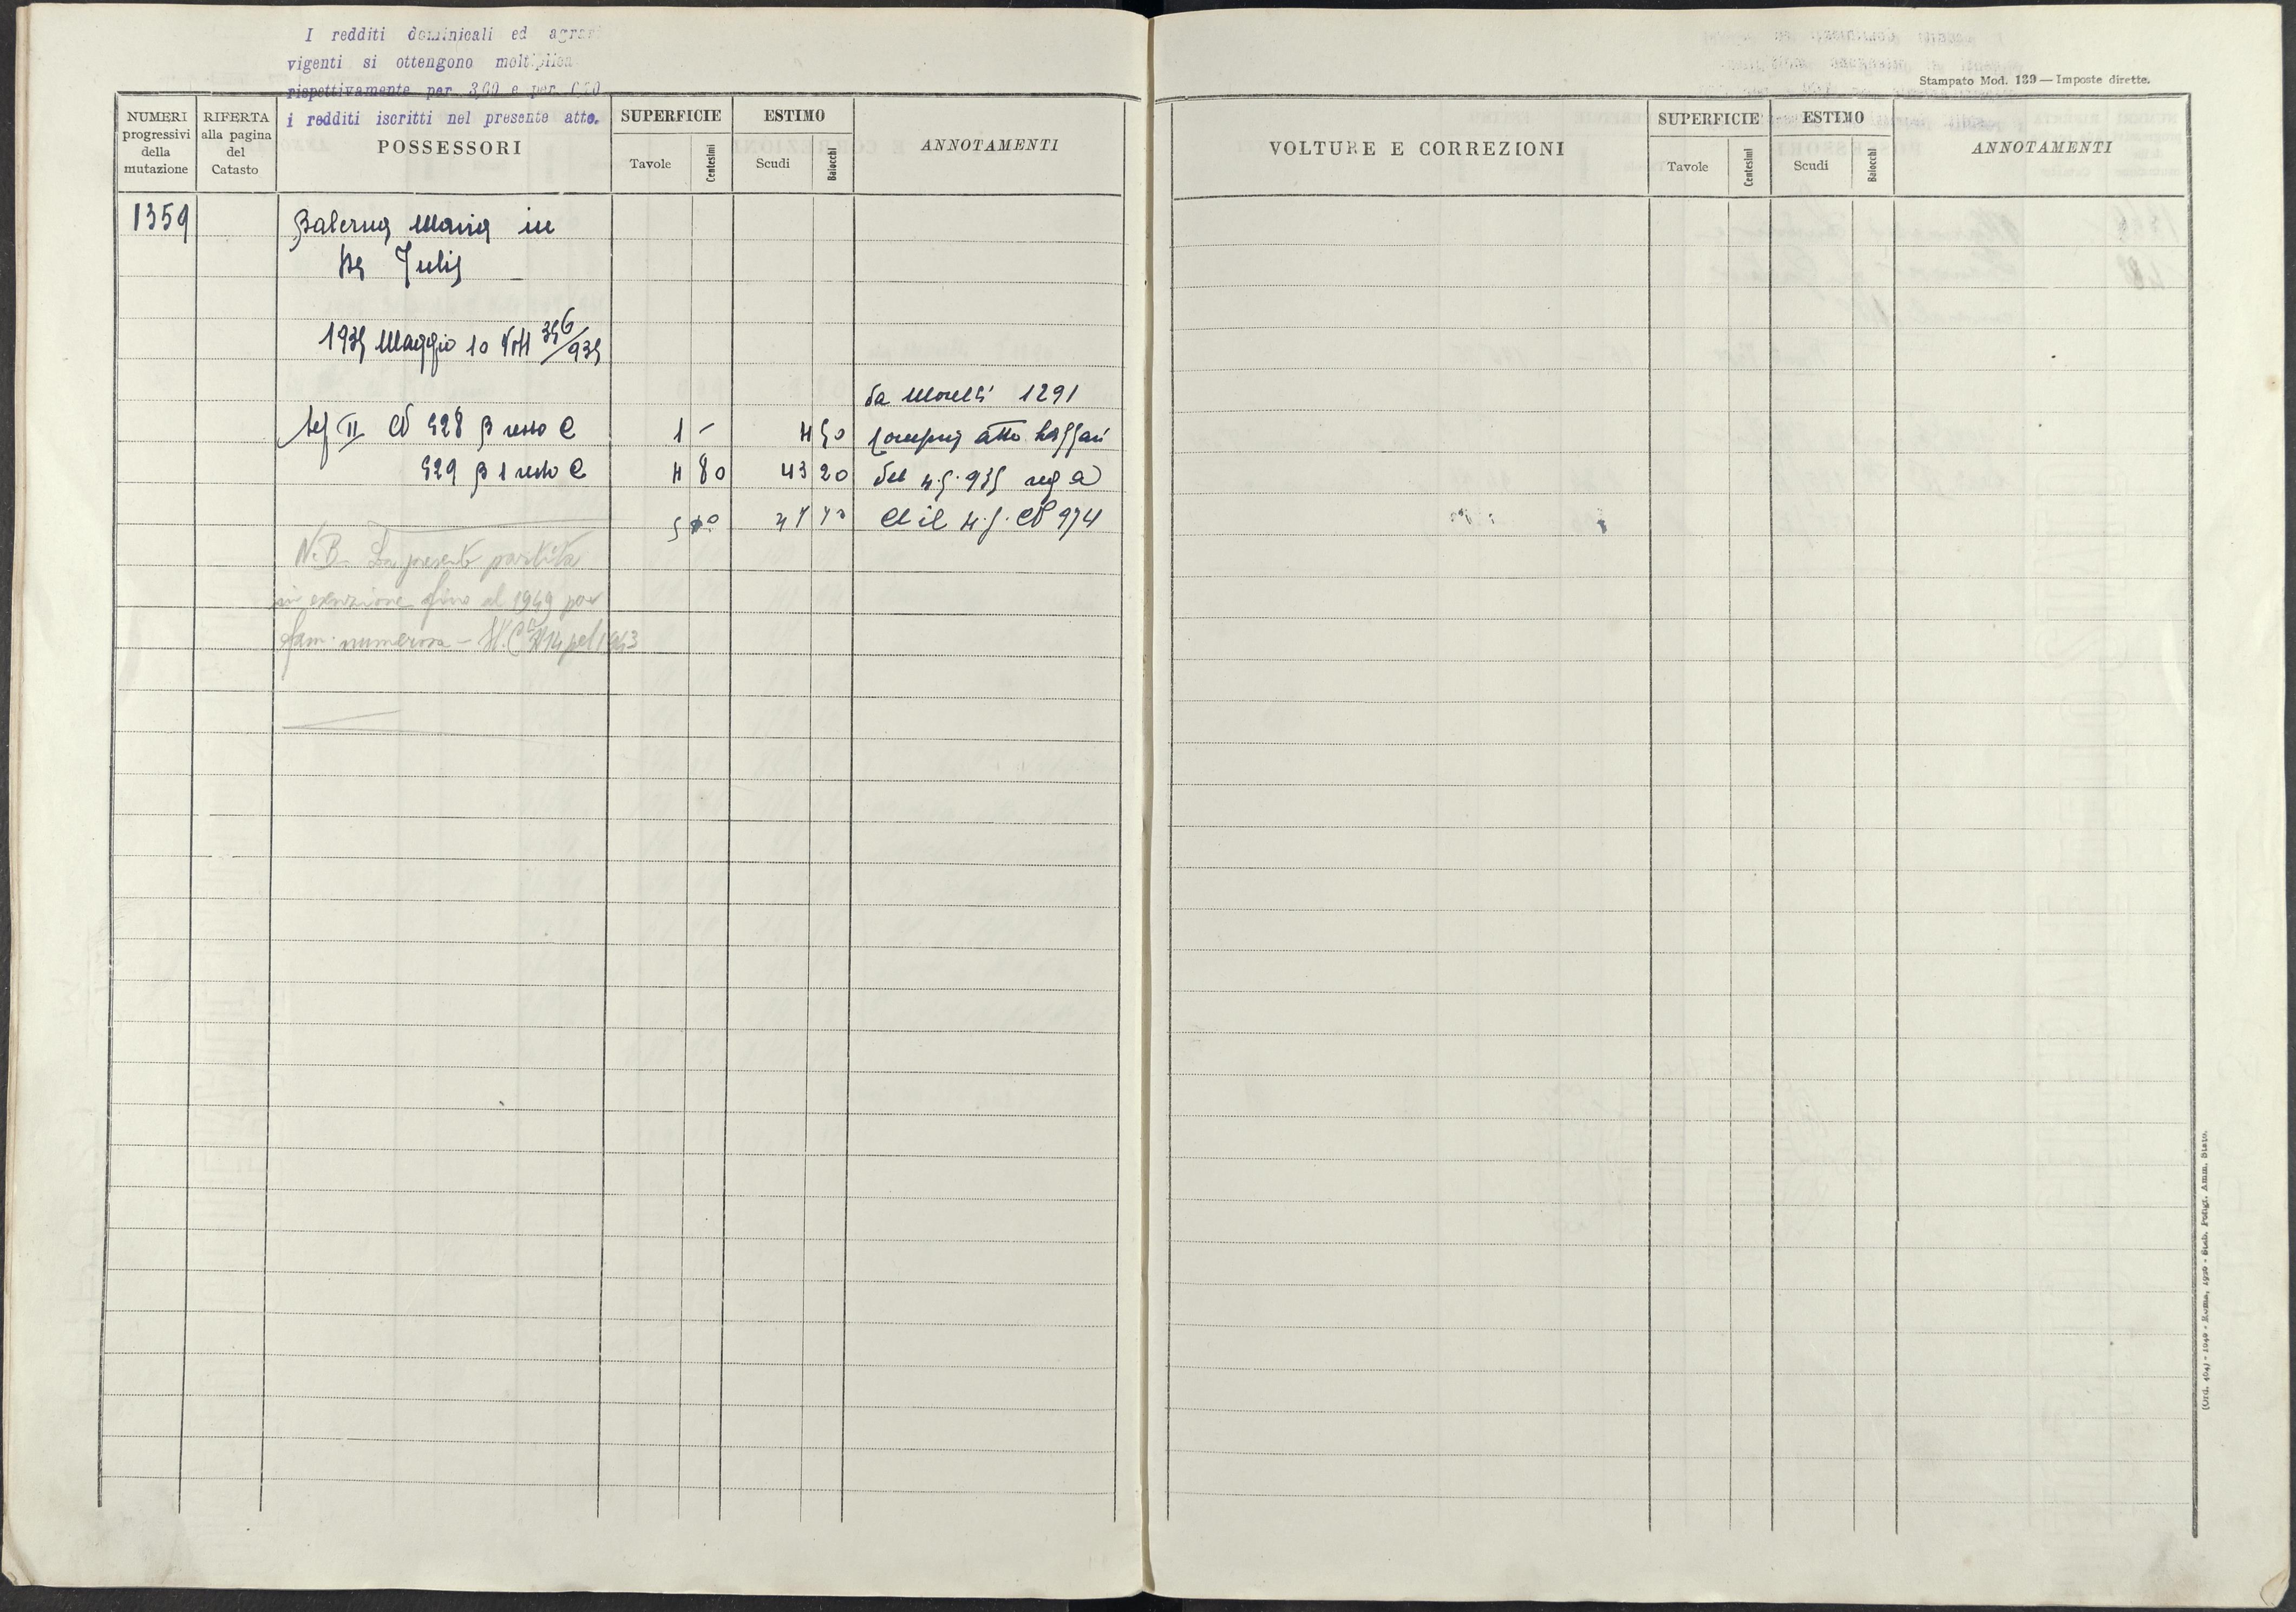 I redditi dominicali ed agrar
vigenti si ottengono moltiplica
rispettivamente per 3,60 e per
i redditi iscritti nel presente atto.
Stampato Mod. 139 — Imposte dirette.
NUMERI progressivi della mutazione
RIFERTA alla pagina del Catasto
POSSESSORI
SUPERFICIE
Tavole
Centesimi
ESTIMO
Scudi
Baiocchi
ANNOTAMENTI
VOLTURE E CORREZIONI
SUPERFICIE
Tavole
Centesimi
ESTIMO
Scudi
Baiocchi
ANNOTAMENTI
1359
Balerna Maria in
De Julis
1935 Maggio 10 Volt 356/935
da Morelli 1291
Sez II 528 B resto 1 - 4 50 Compra atto
529 B 1 resto 4 80 43 20 del 4.5.935 reg a
5 80 47 70 il 4.5. 974
N.B. La presente partita
in esenzione fino al 1949 per
fam. numerosa -
(Ord. 404) - 1949 - Roma, 1930 - Stab. Poligr. Amm. Stato.